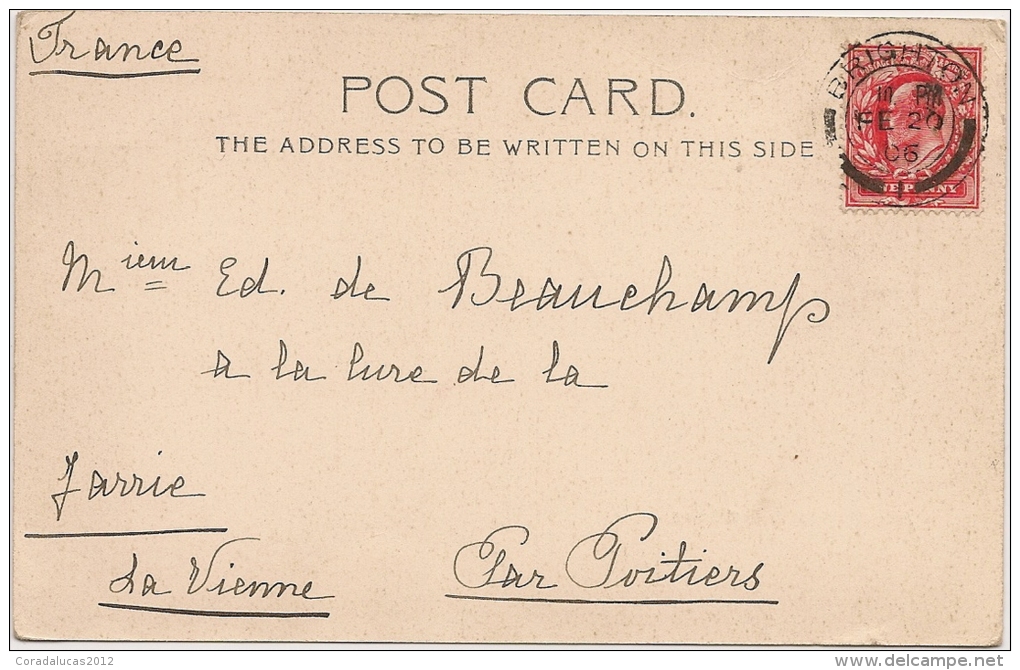 France
POST CARD.
THE ADDRESS TO BE WRITTEN ON THIS SIDE
BRIGHTON
10 PM
FE 20
06
1
ONE PENNY
Mieur Ed. de Beauchamp
a la lure de la
Jarrie
La Vienne
Par Poitiers
Coradalucas2012
delcampe.net